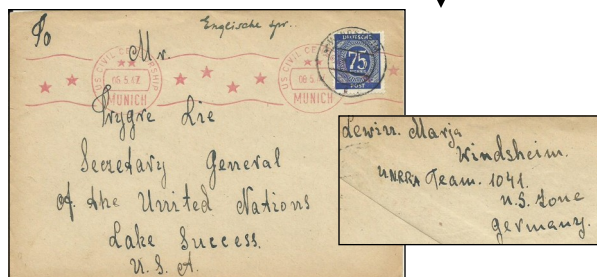 Englische Spr..
To
Mr.
US CIVIL CENSORSHIP
05.5.47.
MUNICH
US CIVIL
08.5.
MUNICH
DEUTSCHE
75
POST
Trygve Lie
Secretary General
of the United Nations
Lake Success.
U. S. A.
Lewin. Marja
Windsheim.
UNRRA Team. 1041.
U.S. Zone
Germany.